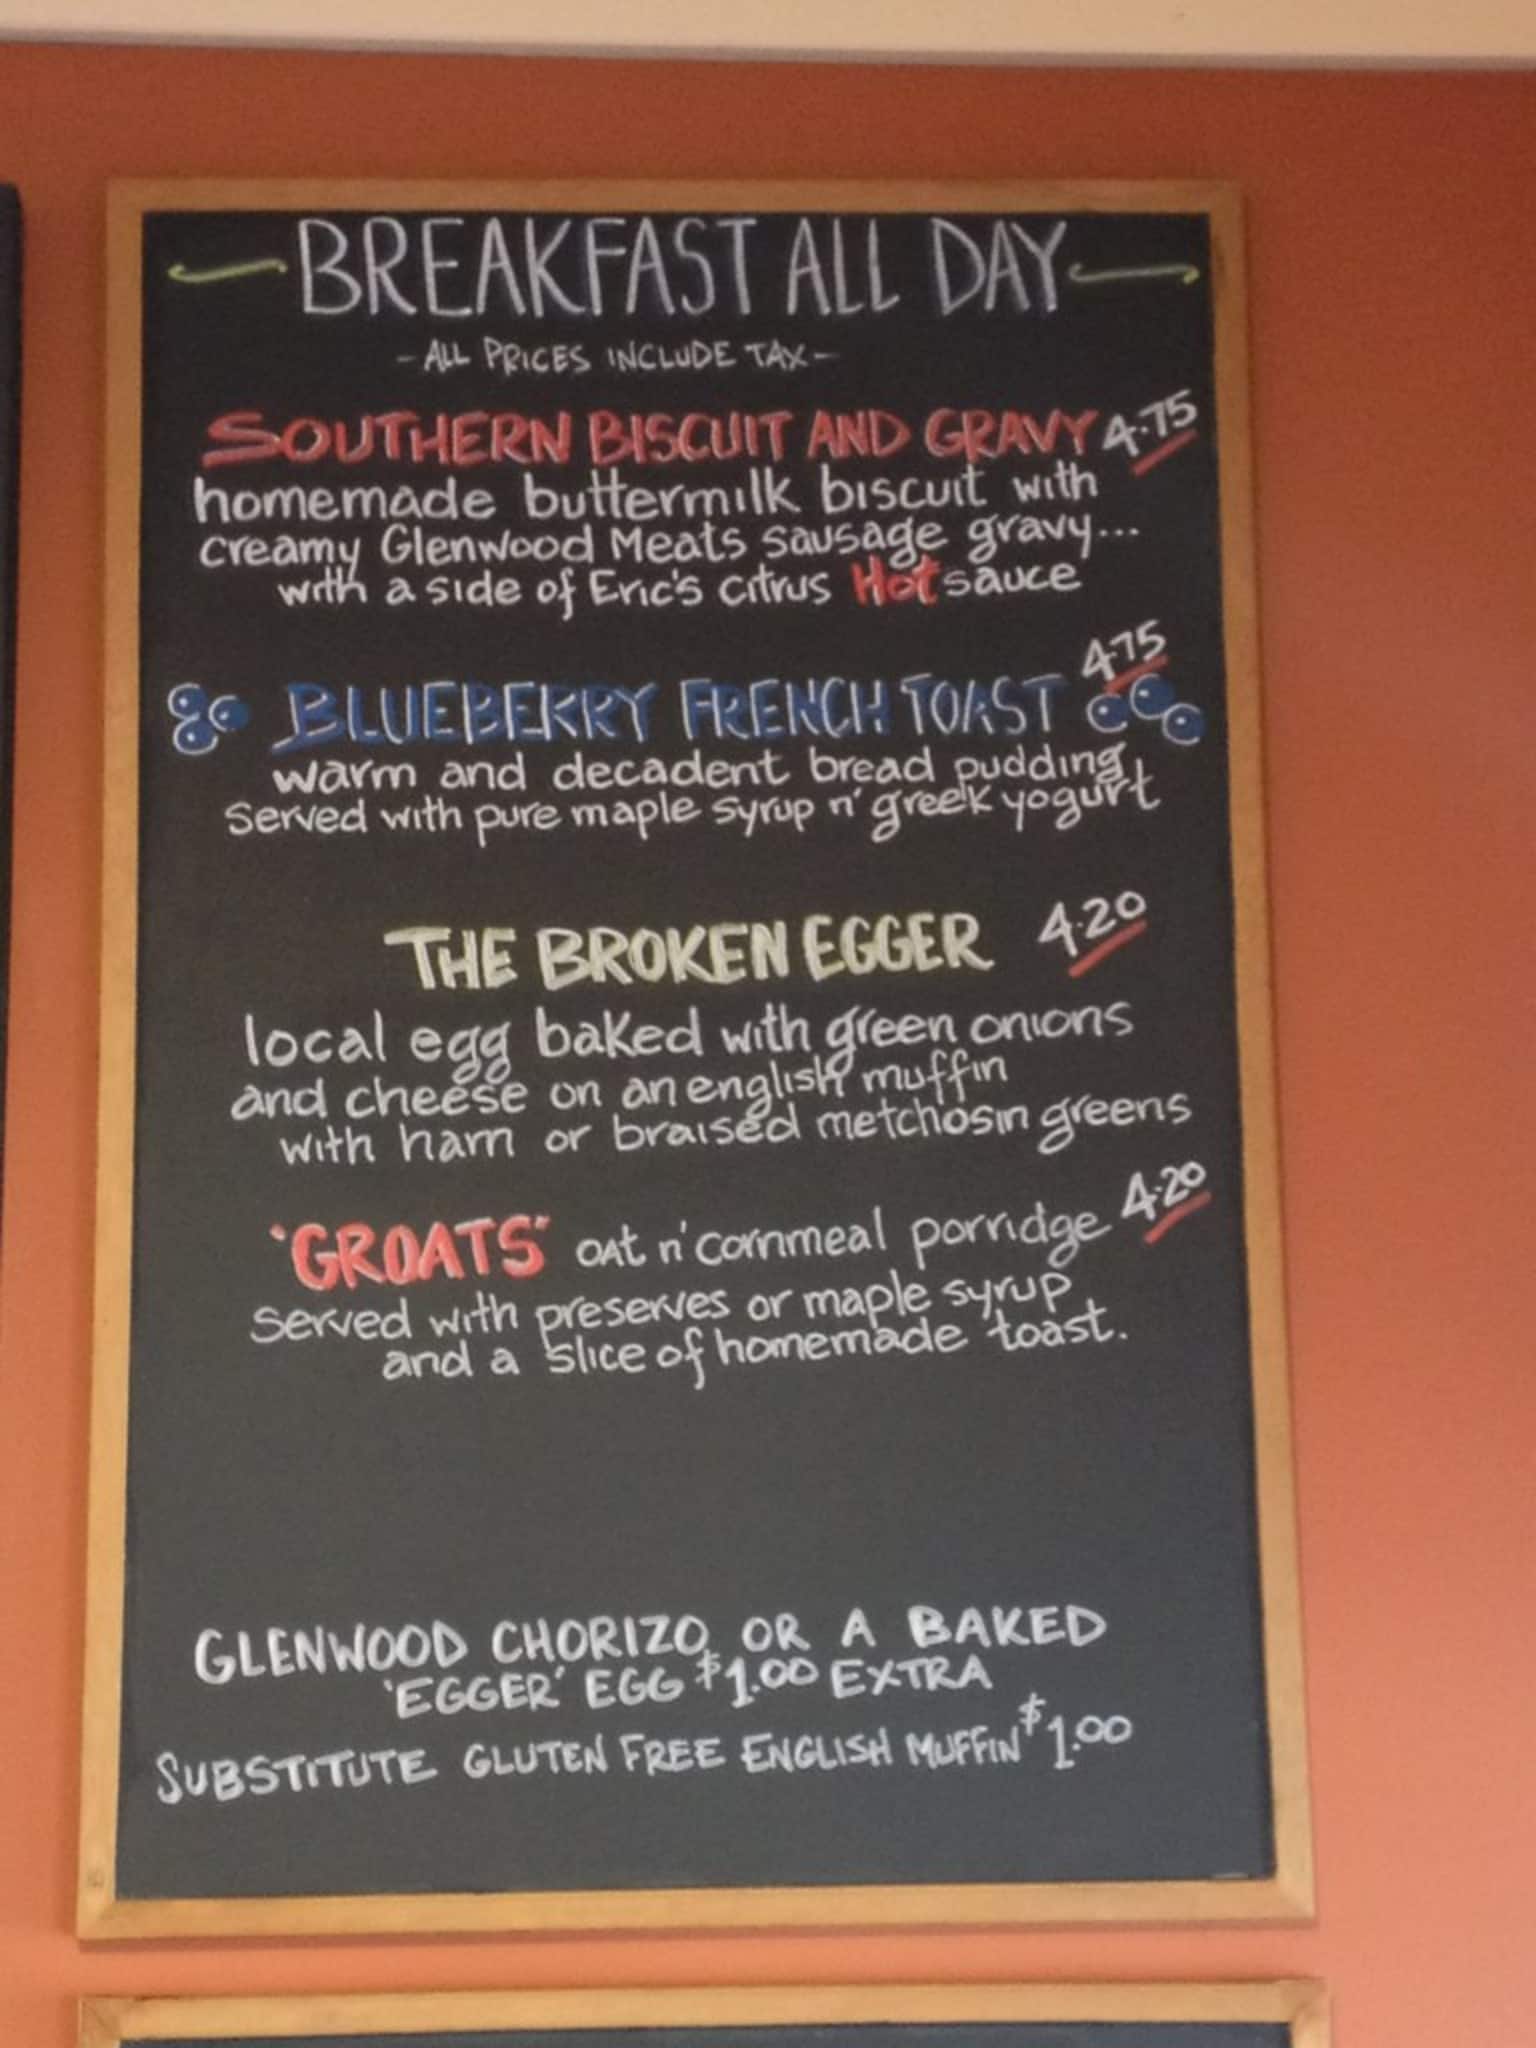 BREAKFAST ALL DAY
- ALL PRICES INCLUDE TAX -
SOUTHERN BISCUIT AND GRAVY 4.75
homemade buttermilk biscuit with
creamy Glenwood Meats sausage gravy...
with a side of Eric's citrus Hot sauce
BLUEBERRY FRENCH TOAST 4.75
warm and decadent bread pudding
served with pure maple syrup n' greek yogurt
THE BROKEN EGGER 4.20
local egg baked with green onions
and cheese on an english muffin
with ham or braised metchosin greens
"GROATS" oat n' cornmeal porridge 4.20
served with preserves or maple syrup
and a slice of homemade toast.
GLENWOOD CHORIZO OR A BAKED
'EGGER' EGG $1.00 EXTRA
SUBSTITUTE GLUTEN FREE ENGLISH MUFFIN $1.00